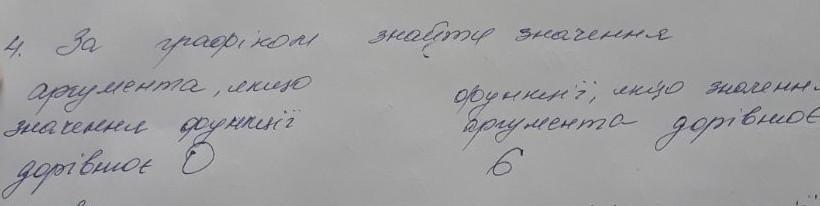 4. За графіком знайти значення
аргумента, якщо
значення функції
дорівнює 0
функції, якщо значенн
аргумента дорівнює
6